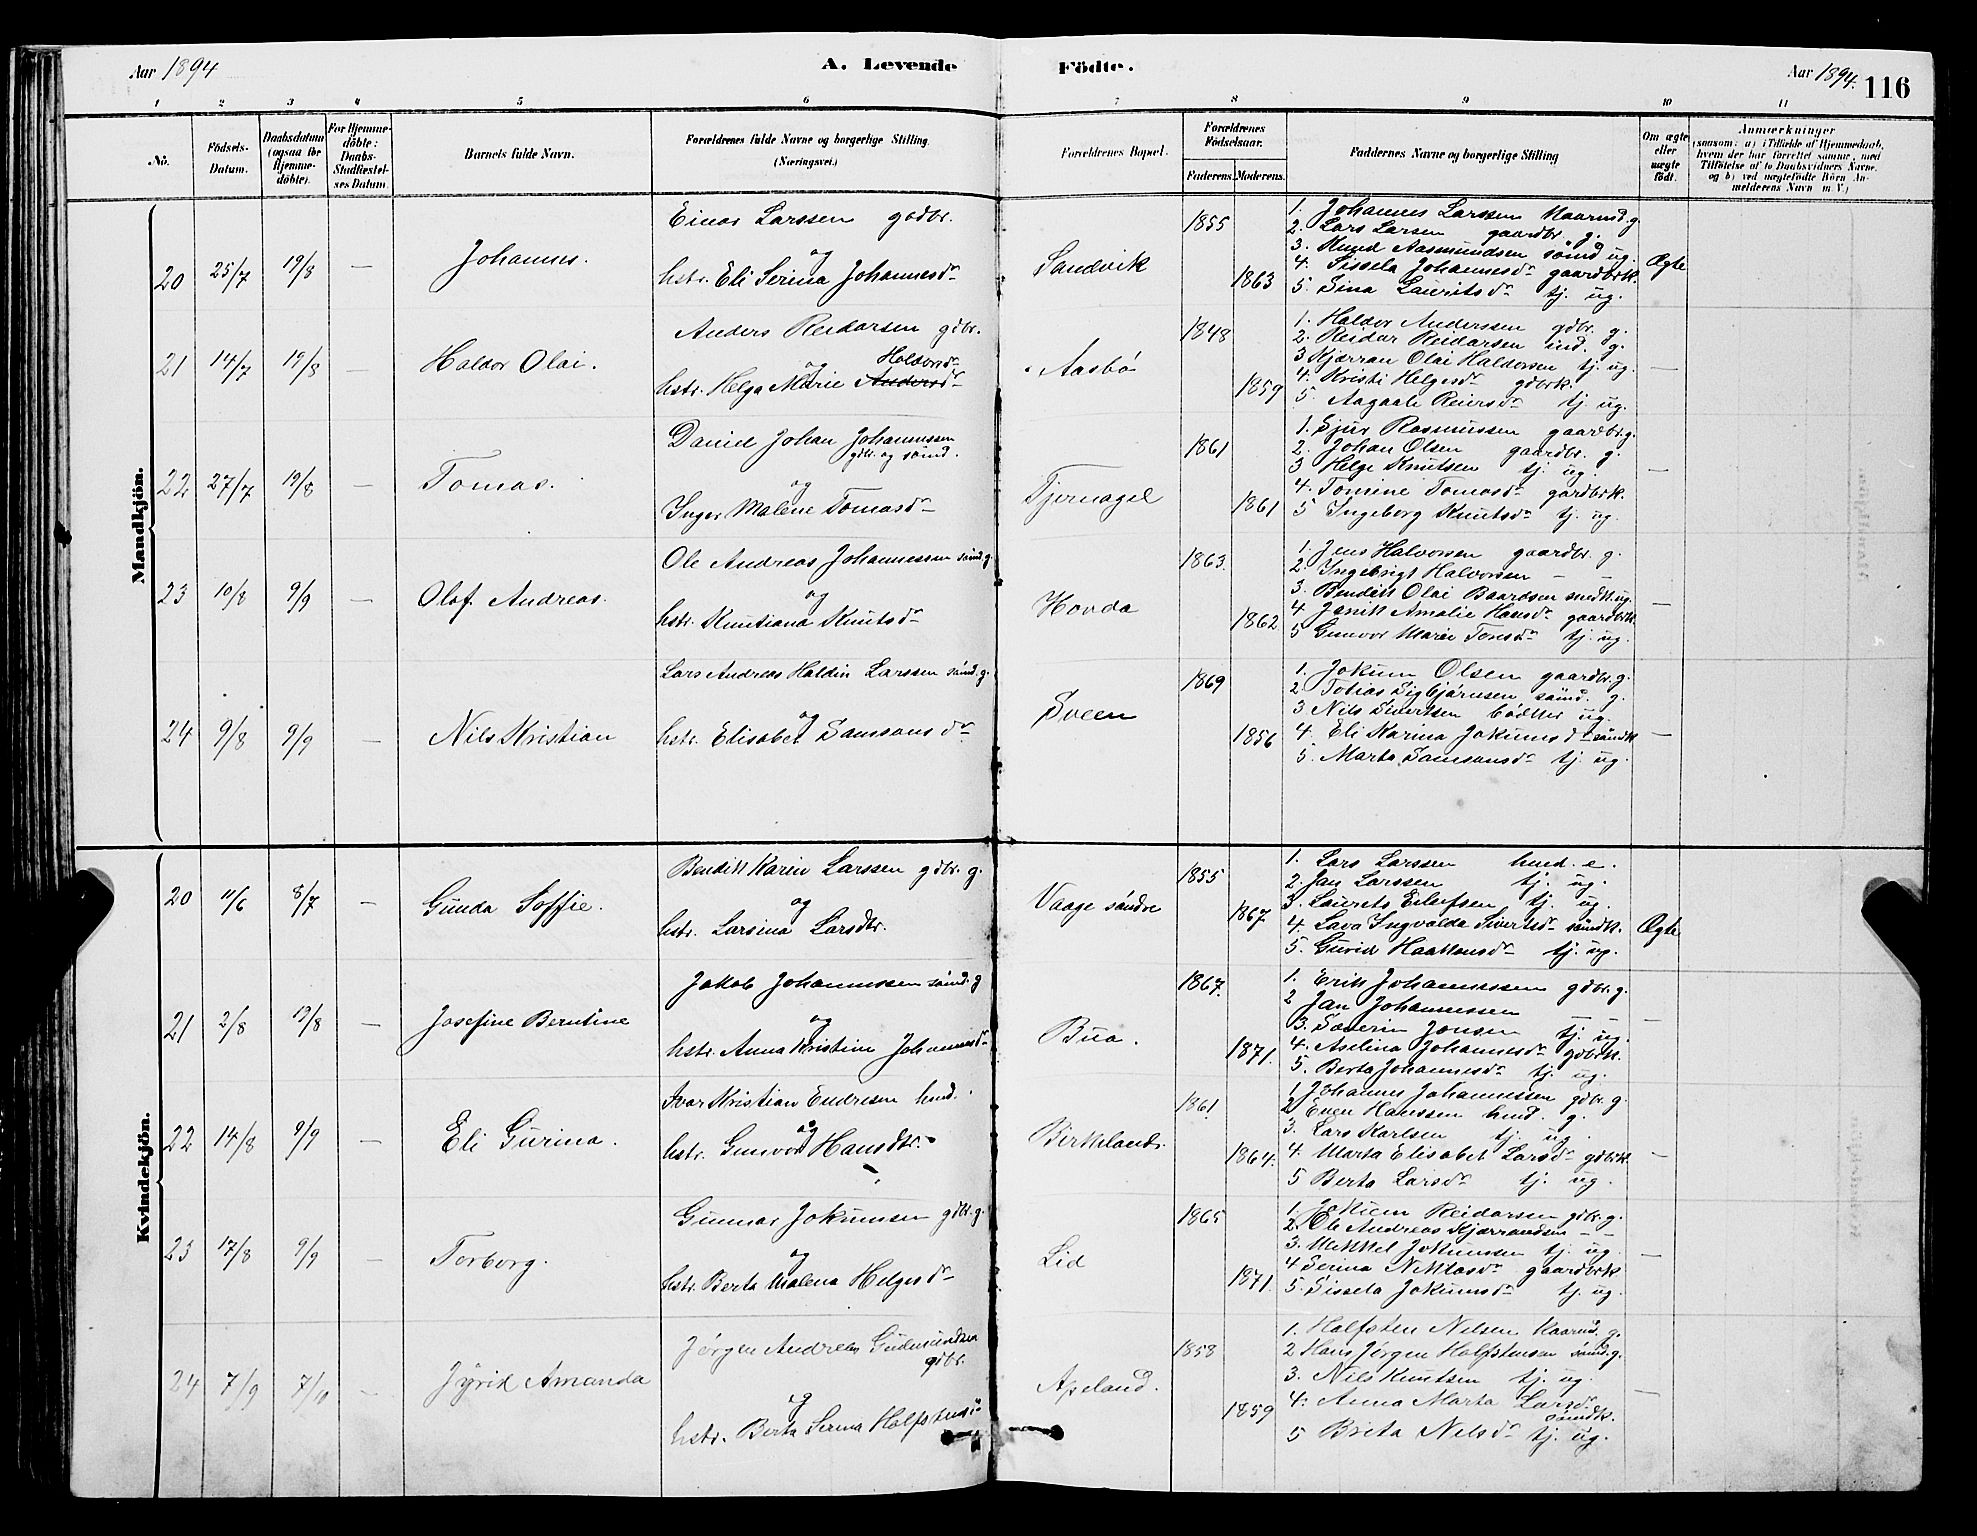 Aar 1894
A. Levende Födte.
Aar 1894.
116
1 2 3 4 5 6 7 8 9 10 11
No.
Födsels-Datum.
Daabsdatum (ogsaa for Hjemme-döbte).
For Hjemme-döbte: Daabs-Stadfæstel-ses Datum.
Barnets fulde Navn.
Forældrenes fulde Navne og borgerlige Stilling. (Næringsvei.)
Forældrenes Bopæl.
Forældrenes Födselsaar.
Faderens. Moderens.
Faddernes Navne og borgerlige Stilling
Om ægte eller uægte födt.
Anmærkninger
(saasom: a) i Tilfælde af Hjemmedaab,
hvem der har forrettet samme, med
Tilföielse af to Daabsvidners Navne.
og b) ved uægtefödte Börn An-
melderens Navn m. V.)
Mandkjön.
20 25/7 19/8 — Johannes.
Einar Larssen gdbr.
og
hstr. Eli Serina Johannesdr
Sandvik
1855
1863
1. Johannes Larssen Kaarmd. g
2. Lars Larsen gaardbr. g.
3. Knud Aasmundsen sömd ug.
4. Sissela Johannesdr gaardbrk.
5. Sina Lauritsdr tj. ug.
Ægte
21 14/7 19/8 — Haldor Olai.
Anders Reidarsen gdbr.
og Haldorsdr
hstr. Helga Marie Andersdr
Aasbö
1848
1859
1. Haldor Anderssen gdbr. g.
2. Reidar Reidarsen ind. g.
3 Kjærran Olai Haldorsen tj. ug.
4. Kristi Helgesdr gdbrk.
5. Aagaate Reiersdr tj. ug.
—
22 27/7 19/8 — Tomas.
Daniel Johan Johannessen
gdbr. og sömd.
og
Inger Malene Tomasdr
Tjernagel
1861
1861
1. Sjur Rasmussen gaardbr. g.
2. Johan Olsen gaardbr. g.
3 Helge Knutsen tj. ug.
4. Tomine Tomasdr gardbrk.
5 Ingeborg Knutsdr tj. ug.
—
23 10/8 9/9 — Olaf Andreas.
Ole Andreas Johannessen sömd g.
og
hstr. Knutiana Knutsdr
Hovda
1863.
1862
1. Jens Halvorsen gaardbr. g.
2. Ingebrigt Halvorsen — —
3. Bendik Olai Baardsen snedk. ug.
4. Janik Amalie Hansdr gaardbrk.
5 Gunvor Marie Tonsdr tj. ug.
—
24 9/8 9/9 — Nils Kristian
Lars Andreas Haldin Larssen sömd. g.
og
hstr. Elisabet Samsonsdr
Sveen
1869
1856
1. Jokum Olsen gaardbr. g.
2. Tobias Sigbjörnsen sömd. g.
3 Nils Sivertsen bödker ug.
4. Eli Karina Jokumsdr sömdk
5. Marta Samsonsdr tj. ug.
—
Kvindekjön.
20 11/6 8/7 — Gunda Soffie.
Bendik Karin Larssen gdbr. g.
og
hstr. Larsina Larsdtr.
Vaage söndre
1855
1867
1. Lars Larssen husd. e.
2. Jan Larssen tj. ug.
3. Laurets Eilefsen tj. ug.
4. Lava Ingvalda Sivertsdr sömdk.
5. Gurid Haakonsdr tj. ug.
Ægte
21 2/8 19/8 — Josefine Berntine
Jakob Johannessen sömd. g
og
hstr. Anna Kristine Johannesdr
Bua.
1867.
1871.
1. Erik Johannessen gdbr. g.
2 Jan Johannessen
3. Severin Jonsen tj. ug.
4. Aselina Johannesdr gdbrk.
5. Berta Johannesdr tj. ug.
—
22 14/8 9/9 — Eli Gurina.
Ivar Kristian Endresen hmd.
og
hstr. Gunvor Hansdtr.
Birkeland.
1861
1864.
1 Johannes Johannessen gdbr. g.
2 Even Hanssen hmd. g.
3. Lars Karlsen tj. ug.
4. Marta Elisabet Larsdr gdbrk.
5 Berta Larsdr tj. ug.
—
23 17/8 9/9 — Torborg.
Gunnar Jokumsen gdbr. g.
og
hstr. Berta Malena Helgesdr
Lid
1865
1871.
1. Jokum Reidarsen gdbr. g.
2. Ole Andreas Kjærrandsen — —
3. Mikkel Jokumsen tj. ug.
4 Serina Niklasdr gaardbrk
5. Sissela Jokumsdr tj. ug.
—
24 7/9 7/10 — Jÿrid Amanda
Jörgen Andreas Gudmundsen
gdbr.
og
hstr. Berta Serina Halfstensdr
Apeland.
1858
1859
1. Halfsten Nilsen Kaarmd. g.
2 Hans Jörgen Halfstensen sömd. g.
3. Nils Knutsen tj. ug.
4. Anna Marta Larsdr
sömdk.
5 Brita Nilsdr tj. ug.
—